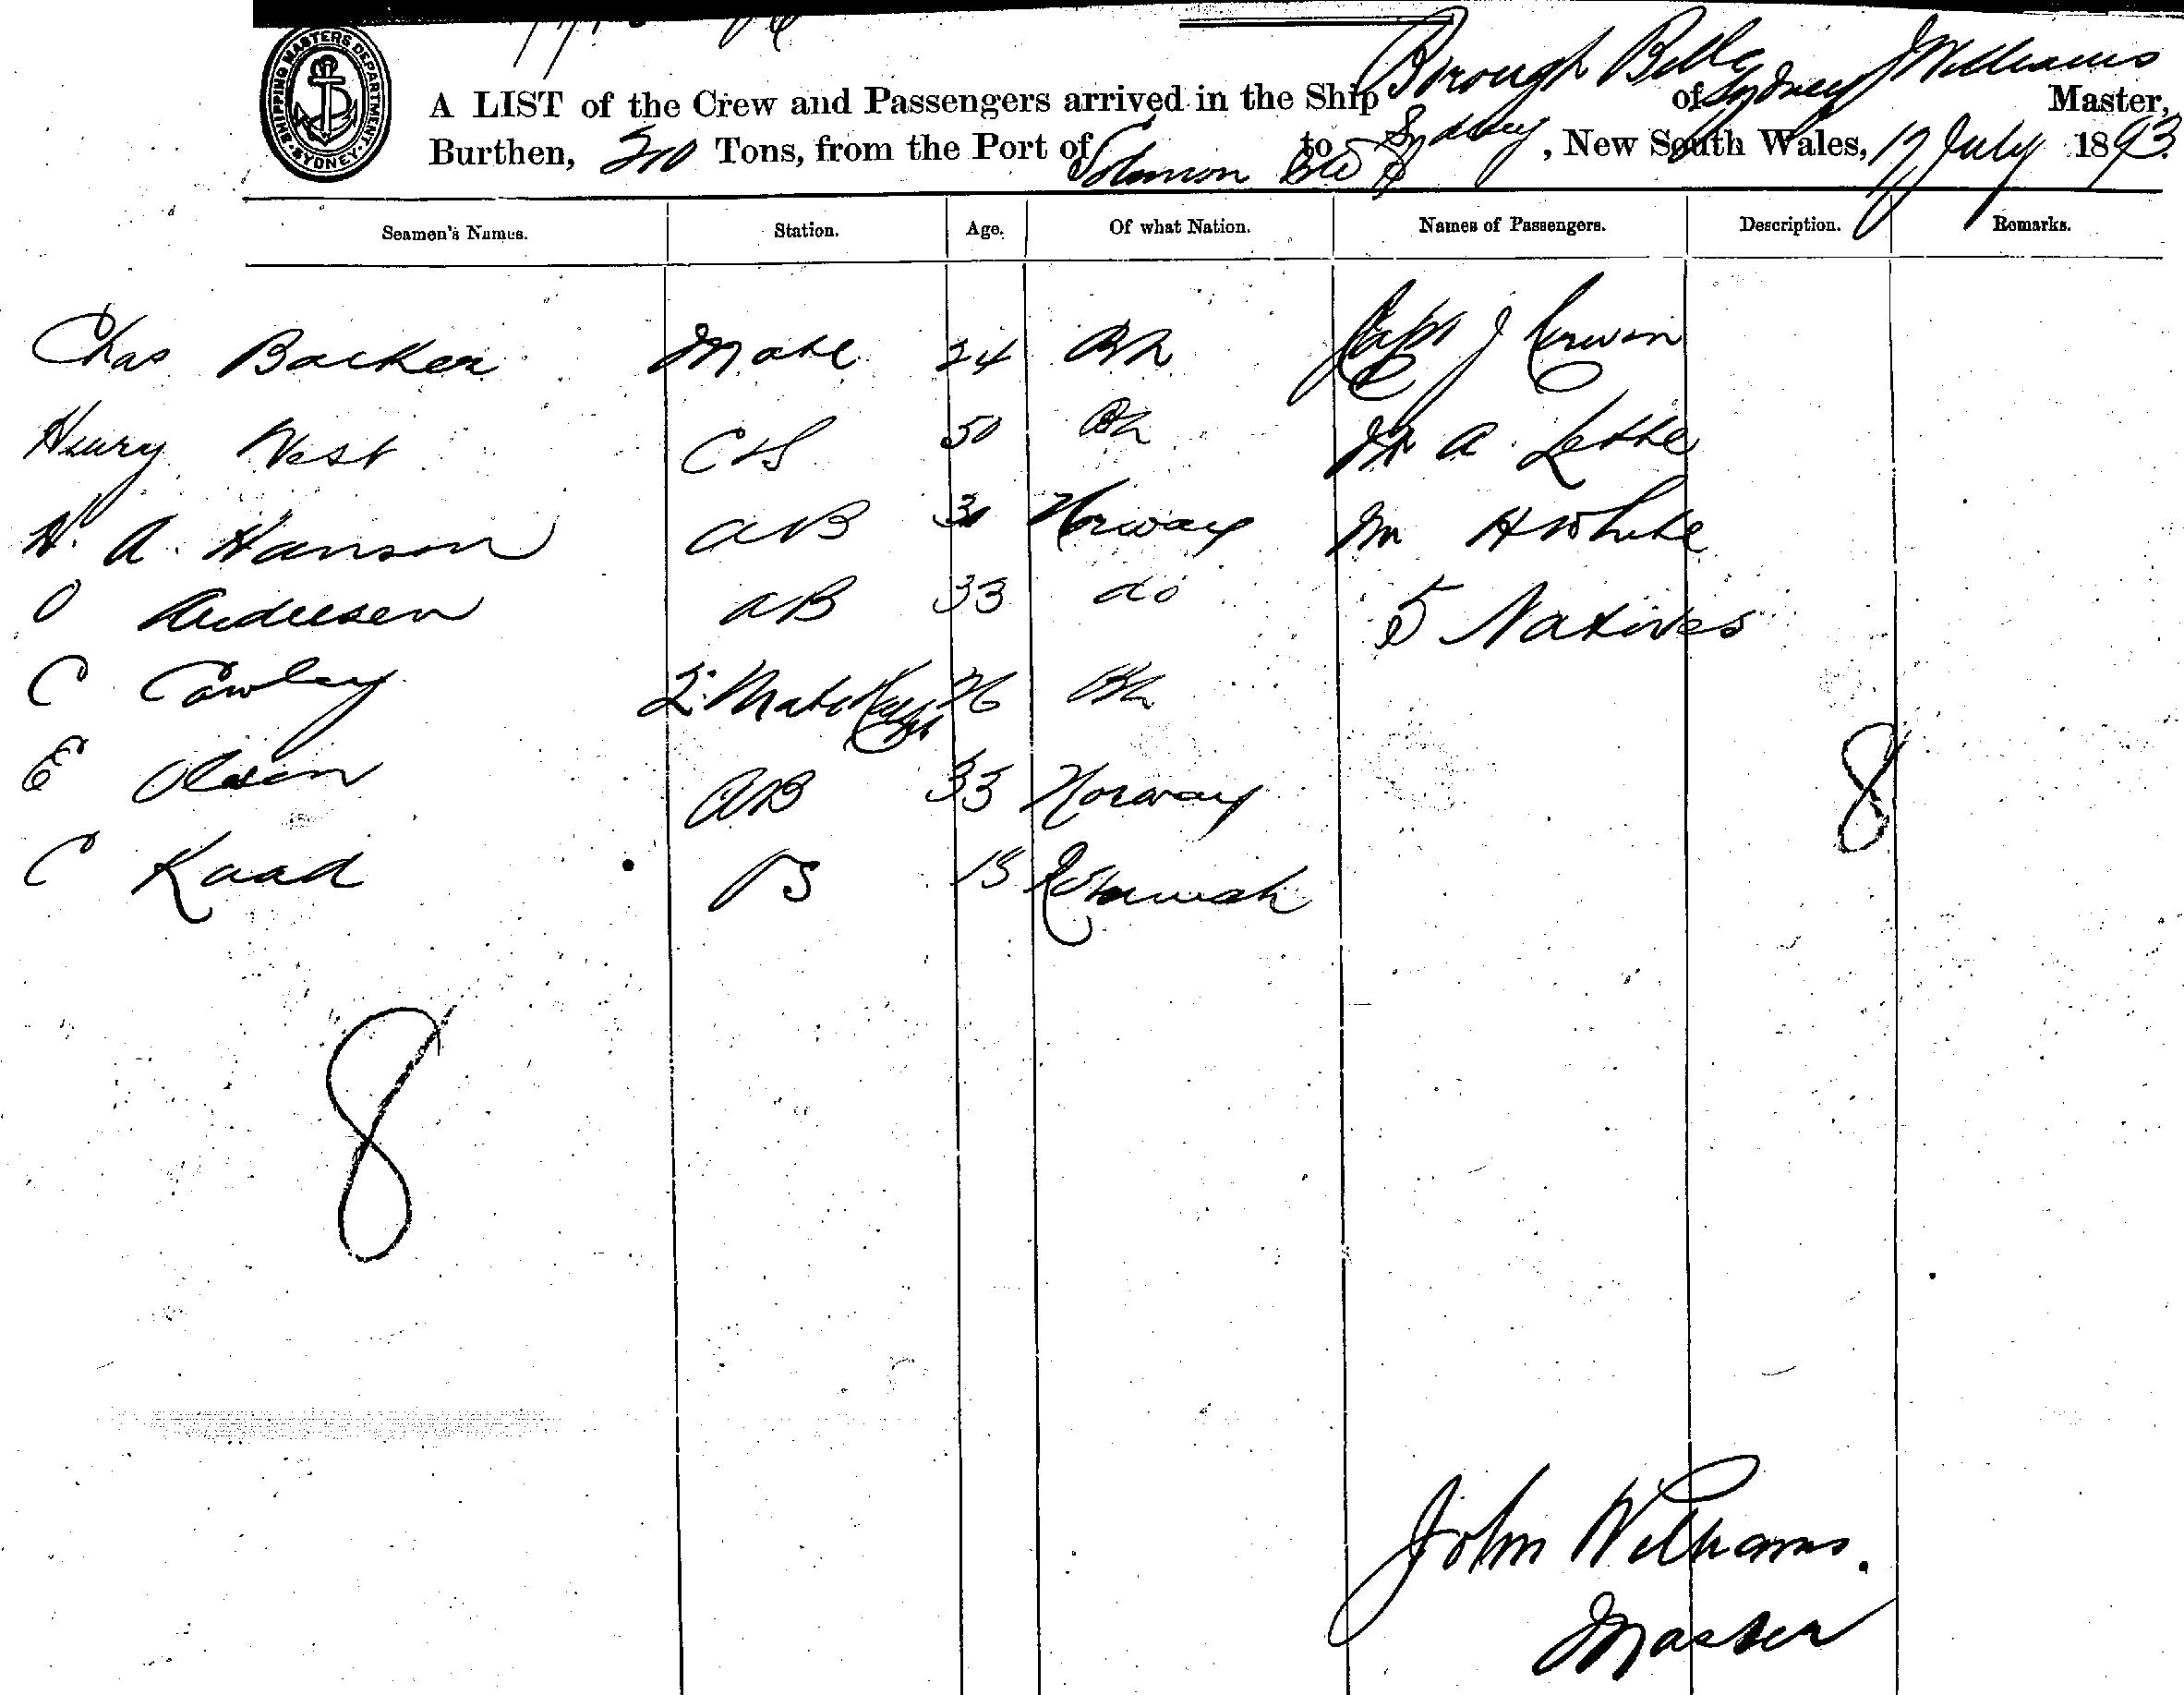 SHIPPING MASTERS DEPARTMENT · SYDNEY ·
A LIST of the Crew and Passengers arrived in the Ship Borough Belle of Sydney J Williams Master,
Burthen, 210 Tons, from the Port of Solomon to Sydney, New South Wales, 17 July 1893
Seamen's Names. Station. Age. Of what Nation. Names of Passengers. Description. Remarks.
Chas Barker Mate 24 Bh Capt J Kerwin
Henry West C & S 50 Bh Mr A. Lethe
H. A. Hanson AB 30 Norway Mr H White
O Andersen AB 33 do 5 Natives
C Cowley 2 Mate 26 Bh
E Olsen AB 33 Norway 8
C Kaad OS 18
8
John Williams.
Master